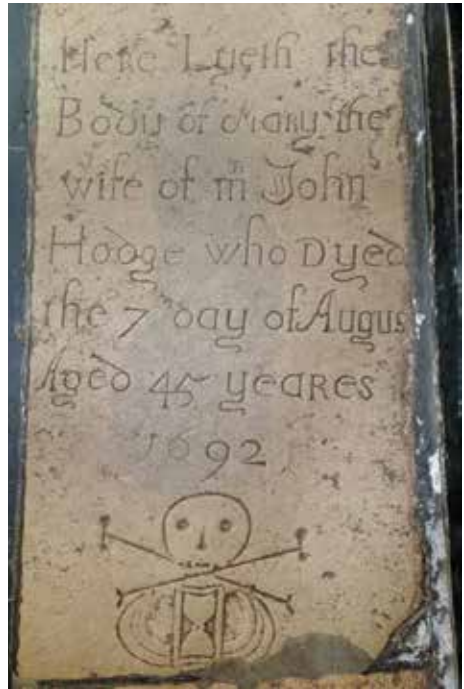 Here Lyeth the
Body of Mary the
wife of m John
Hodge who Dyed
the 7 day of Augus
Aged 45 yeares
1692